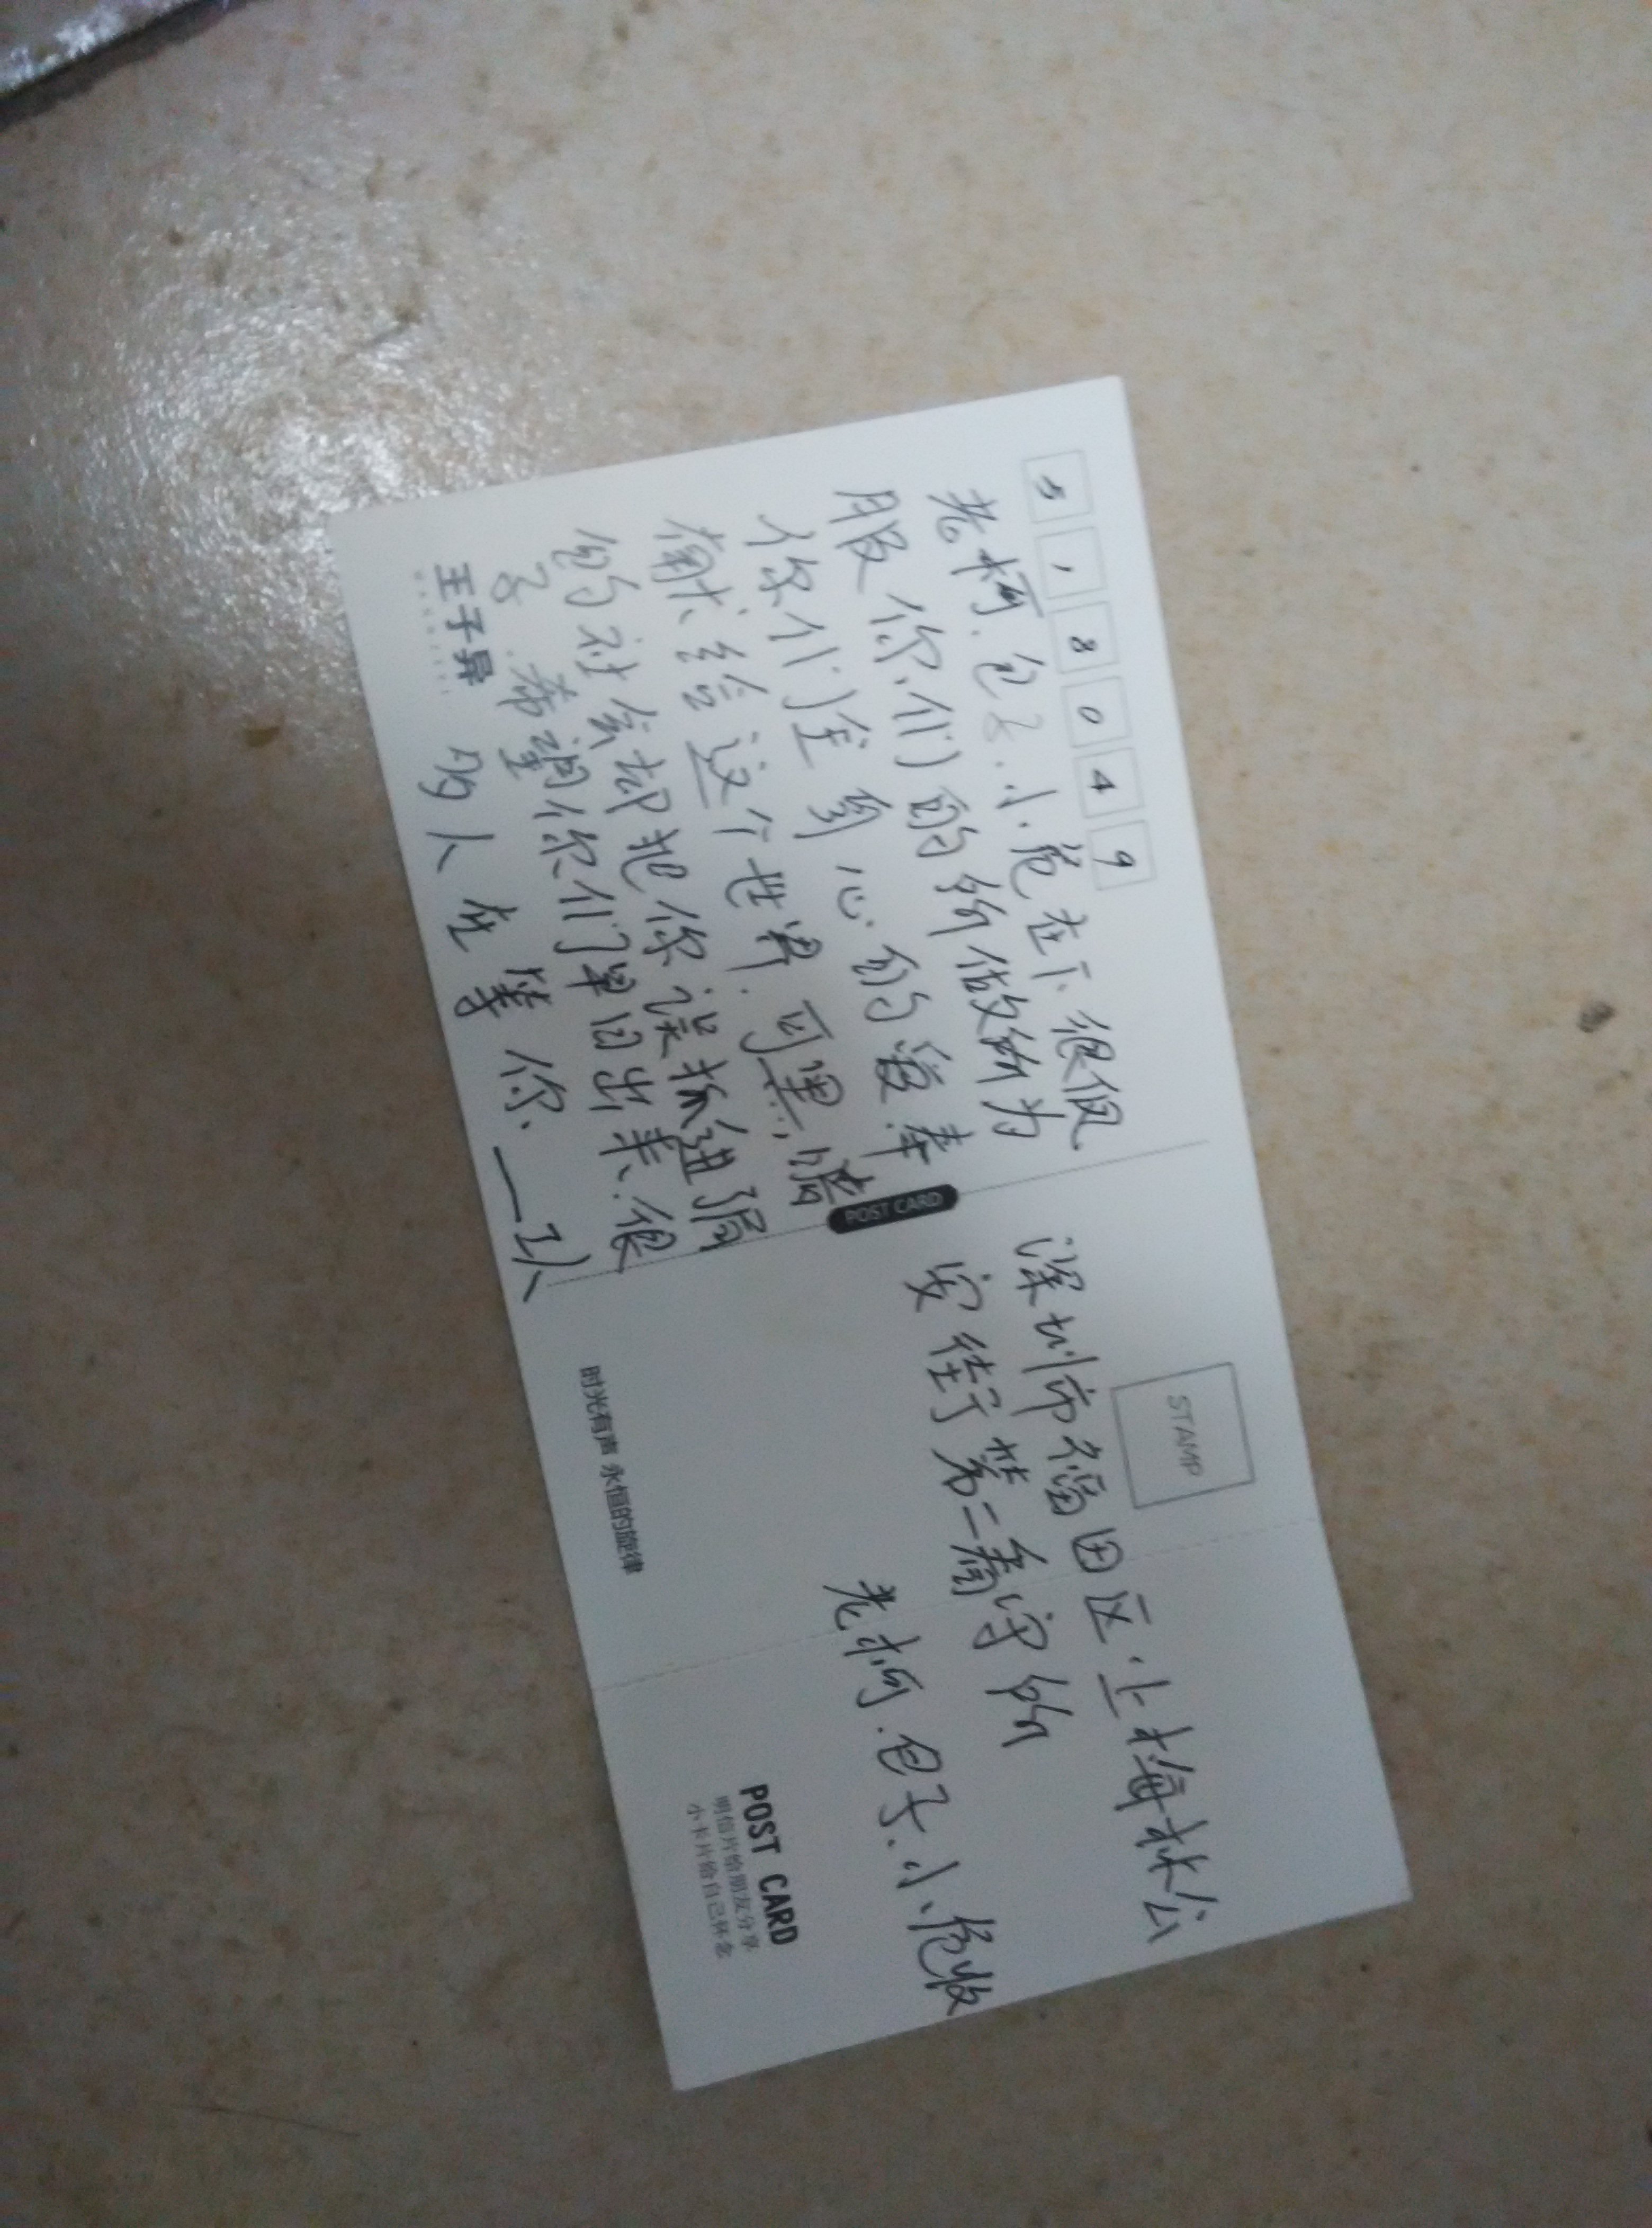 518049
老柯.包子.小危在下很佩
服你们的所做所为
你们全身心的爱奉
献给这个世界.可黑暗
的社会却把你误抓进局
子.希望你们早日出来.很
多人在等你
王子异
POST CARD
STAMP
深圳市福田区上梅林公
安街第二看守所
老柯.包子.小危收
POST CARD
明信片给朋友分享
小卡片给自己怀念
时光有声 永恒的旋律